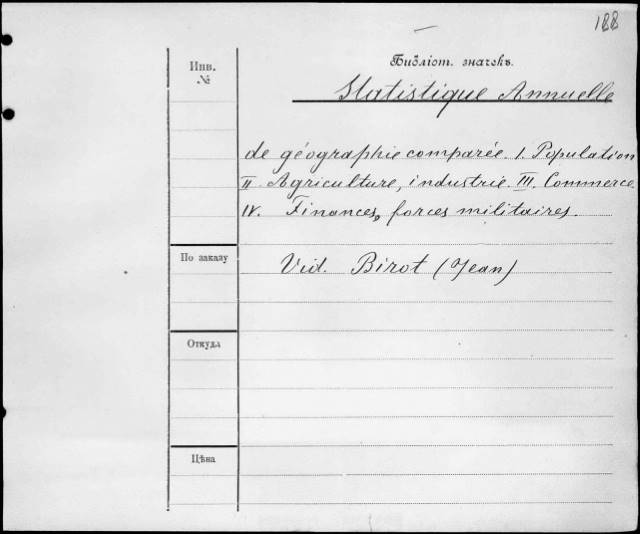 188
Инв.
№
Библіот. значекъ.
Statistique Annuelle
de géographie comparée. I. Population
II. Agriculture, industrie. III. Commerce.
IV. Finances, forces militaires.
По заказу
Vid. Birot (Jean)
Откуда
Цѣна